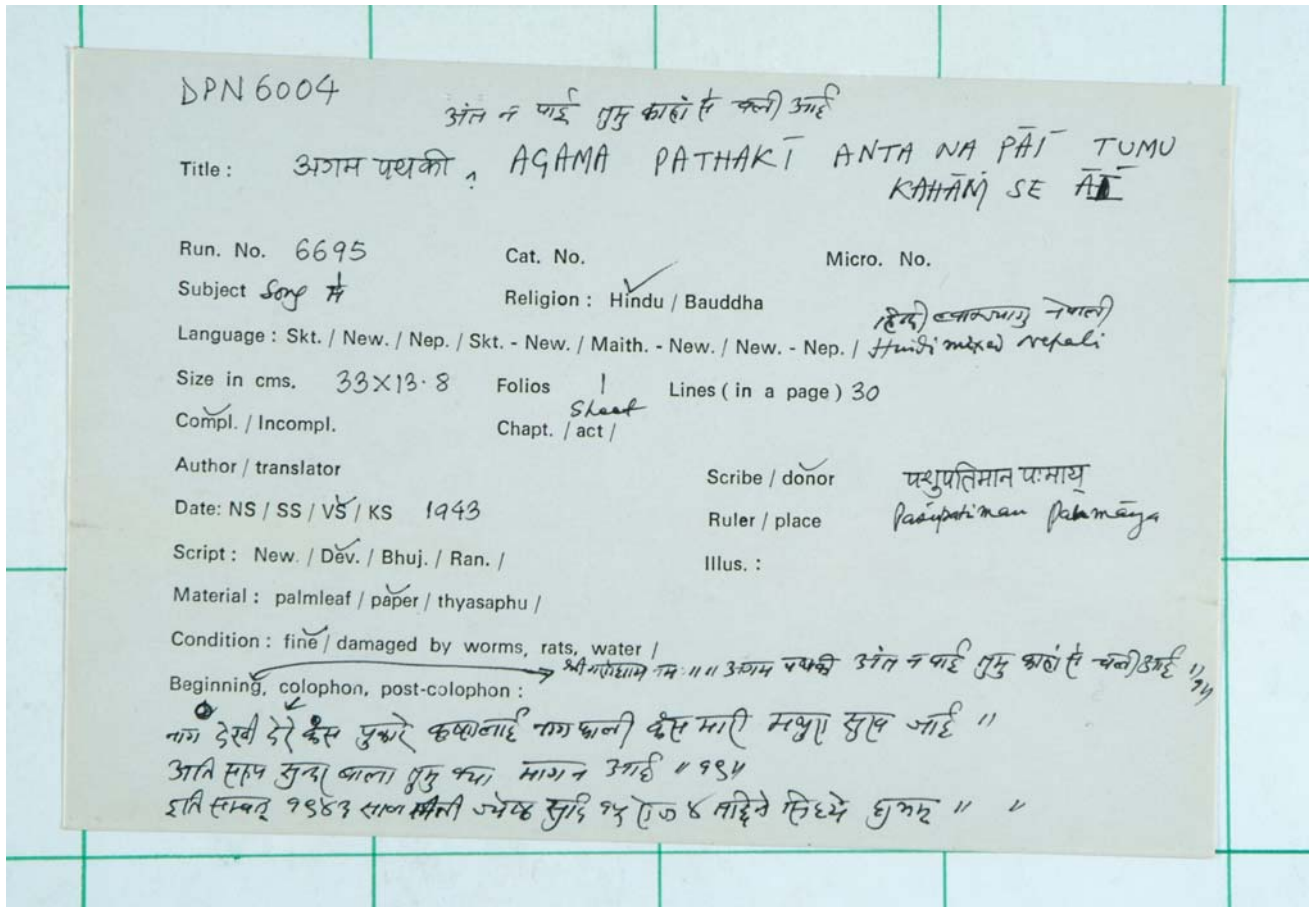 DPN 6004
अंत न पाई तुमु काहां से चली आई
Title : अगम पथकी ^ AGAMA PATHAKĪ ANTA NA PĀĪ TUMU
KAHĀṀ SE ĀĪ
Run. No. 6695 Cat. No. Micro. No.
Subject Song Religion : Hindu / Bauddha
हिन्दी नेपाली
Language : Skt. / New. / Nep. / Skt. - New. / Maith. - New. / New. - Nep. / Hindi mixed Nepali
Size in cms. 33×13.8 Folios 1 Lines ( in a page ) 30
Sheet
Compl. / Incompl. Chapt. / act /
Author / translator Scribe / donor पशुपतिमान पःमाय्
Date: NS / SS / VS / KS 1943 Ruler / place Paśupatiman Pahmāya
Script : New. / Dev. / Bhuj. / Ran. / Illus. :
Material : palmleaf / paper / thyasaphu /
Condition : fine / damaged by worms, rats, water /
श्री गणेशाय नमः ॥ ॥ अगम पथकी अंत न पाई तुमु काहां से चली आई ॥
Beginning, colophon, post-colophon :
नाग देखी देरे कंस पुकारे नाग कंस मारी मथुरा जाई ॥
अति सुन्दर बाला तुमु क्या मागन आई ॥ १९॥
इति सम्वत् १९४३ साल मीती ज्येष्ठ सुदि १५ रोज ४ शुभम् ॥ ॥